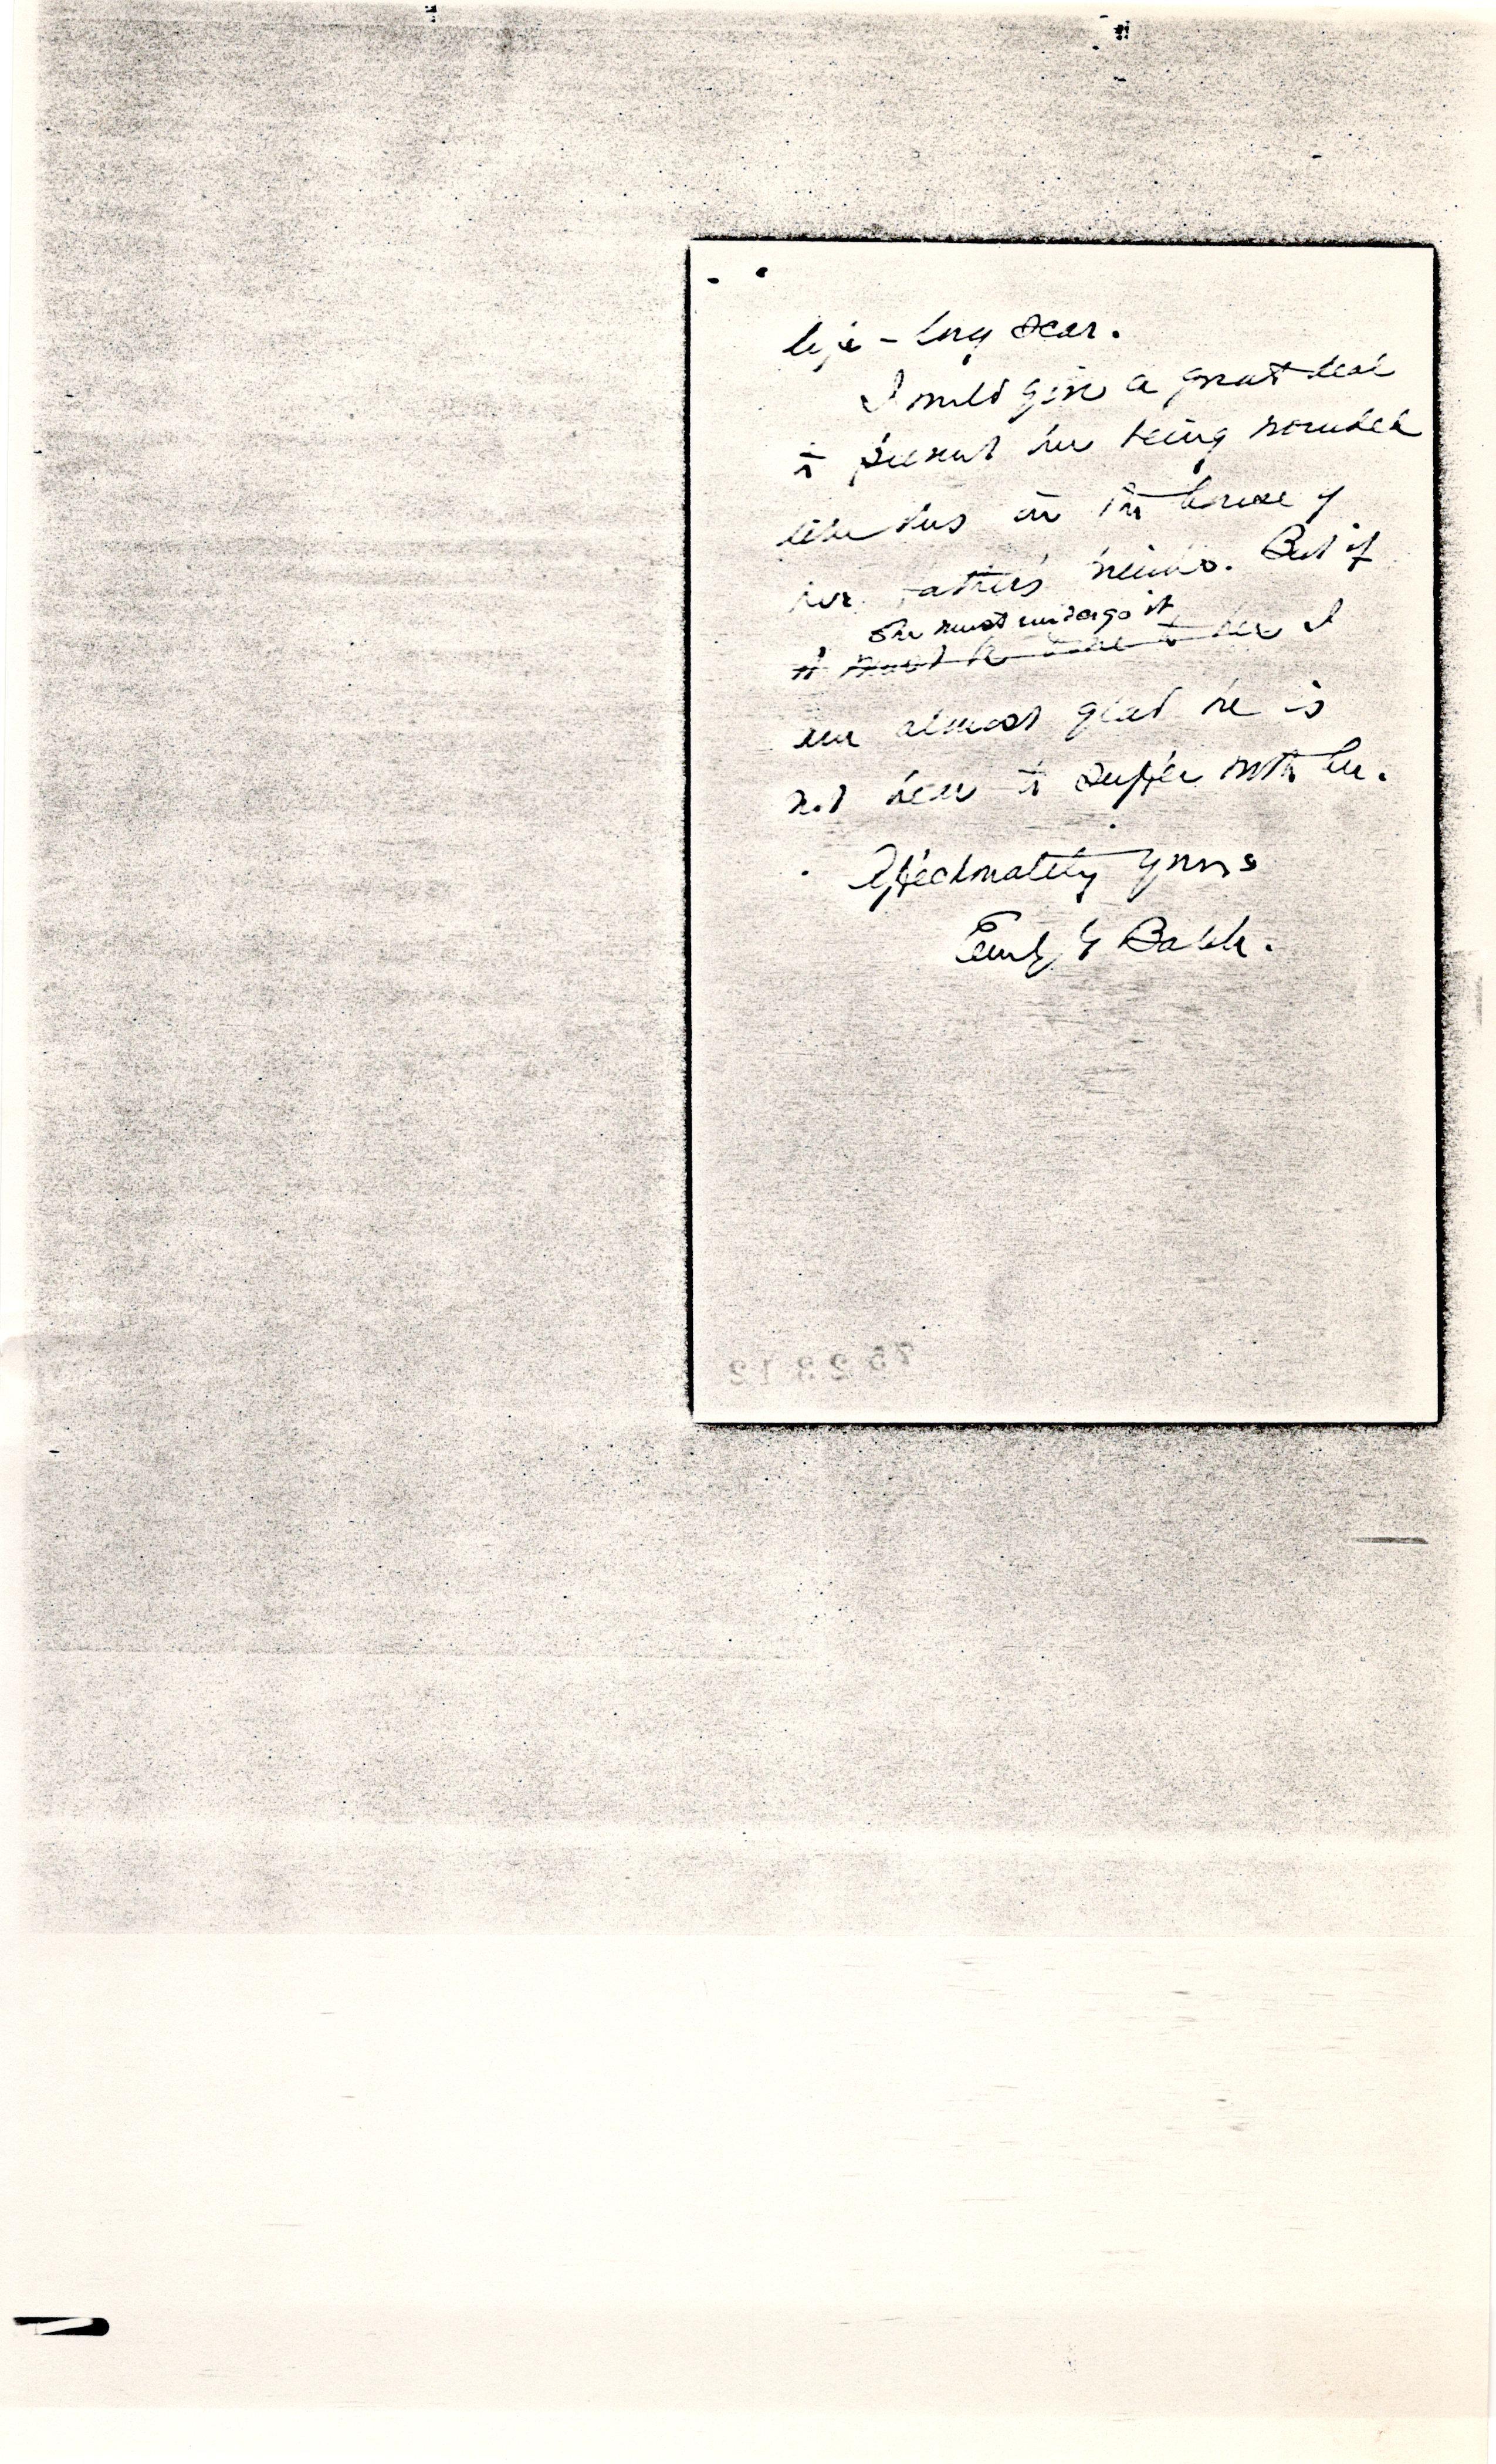 life-long scar.
I would give a great deal
to prevent her being wounded
like this in the house of
her father's friends. But if
she must undergo it
it must be done to her I
am almost glad he is
not here to suffer with her.
Affectionately yours
Emily G Balch.
752312